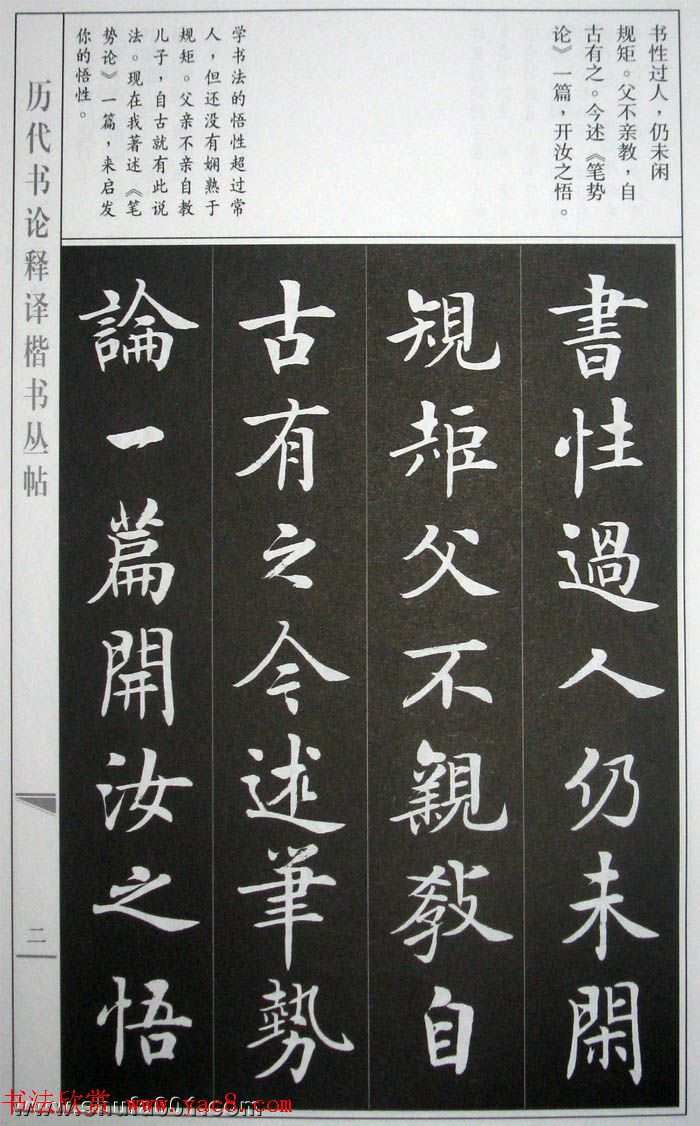 书性过人，仍未闲
规矩。父不亲教，自
古有之。今述《笔势
论》一篇，开汝之悟。
学书法的悟性超过常
人，但还没有娴熟于
规矩。父亲不亲自教
儿子，自古就有此说
法。现在我著述《笔
势论》一篇，来启发
你的悟性。
書性過人仍未閑
規矩父不親教自
古有之今述筆勢
論一篇開汝之悟
历代书论释译楷书丛帖
二
书法欣赏 www.yac8.com